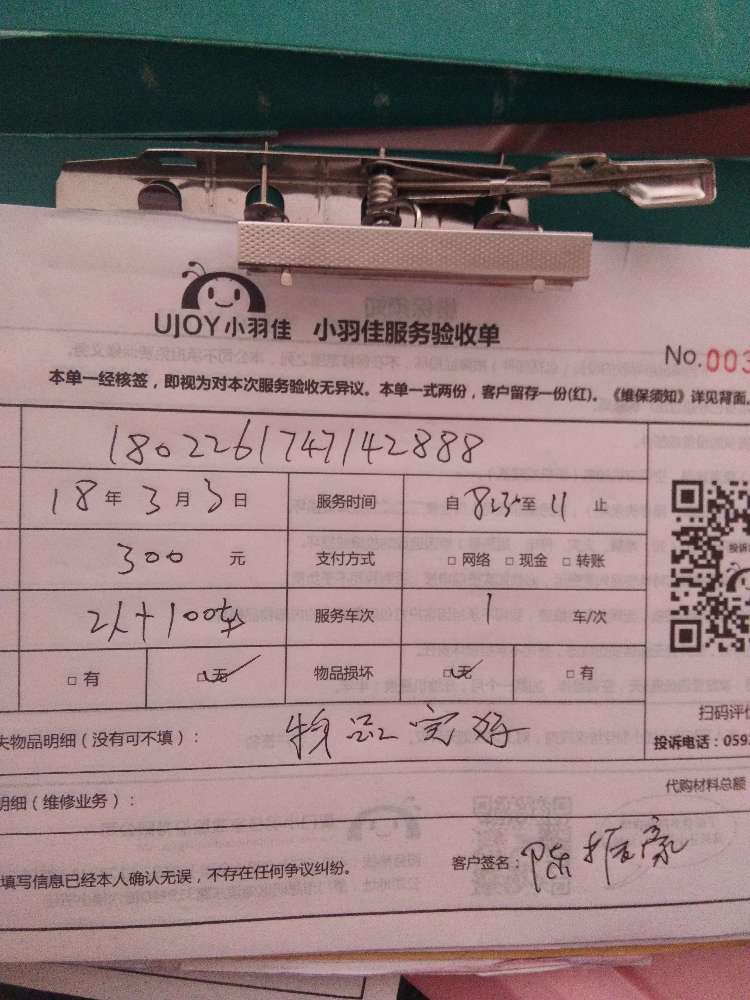 UJOY小羽佳 小羽佳服务验收单
No.003
本单一经核签，即视为对本次服务验收无异议。本单一式两份，客户留存一份(红)。《维保须知》详见背面。
1802261747142888
18年3月3日 服务时间 自 至 11 止
300 元 支付方式 □网络 □现金 □转账
2人+100 服务车次 1 车/次
□有 □无 物品损坏 □无 □有
扫码评价
失物品明细（没有可不填）： 物品完好 投诉电话：059
代购材料总额
明细（维修业务）：
填写信息已经本人确认无误，不存在任何争议纠纷。 客户签名：陈振豪